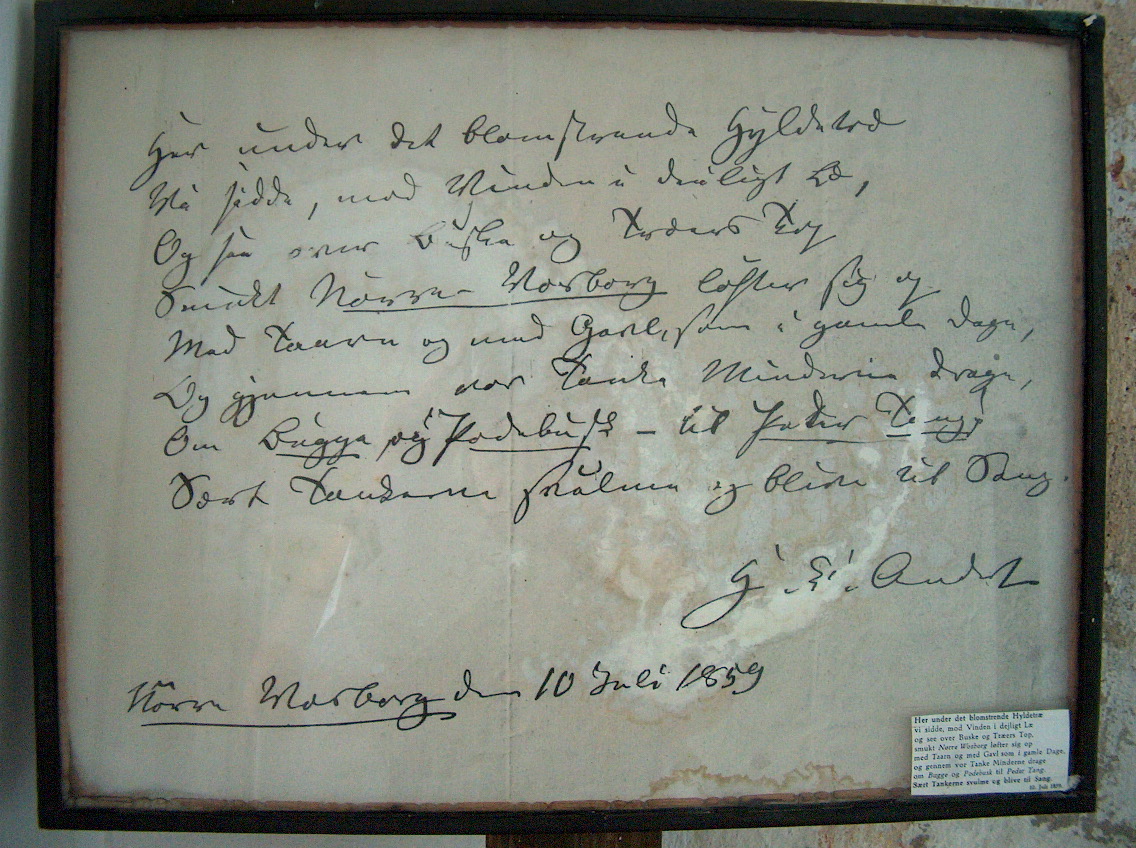 Her under det blomstrende Hyldetræ
Vi sidde, mod Vinden i deiligt Læ,
Og see over Buske og Træers Top
Smukt Nörre-Vosborg löfter sig op
Med Taarn og med Gavl, som i gamle Dage,
Og gjennem vor Tanke Minderne drage,
Om Bugge og Podebusk – til Peder Tang;
Sært Tankerne svulme og blive til Sang.
H. C. Anders
Nörre Vosborg den 10 Juli 1859
Her under det blomstrende Hyldetræ
vi sidde, mod Vinden i dejligt Læ
og see over Buske og Træers Top,
smukt Nørre Wosborg løfter sig op
med Taarn og med Gavl som i gamle Dage,
og gennem vor Tanke Minderne drage
om Bugge og Podebusk til Peder Tang.
Sært Tankerne svulme og blive til Sang.
10. Juli 1859.